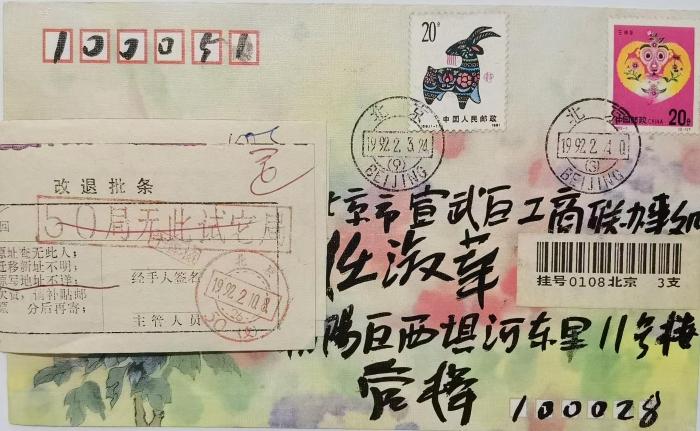 100051
20分
中国人民邮政
北京
1992.2.3.24
(9)
BEIJING
壬申年
中国邮政 CHINA
20分
北京
1992.2
(S)
BEIJING
改退批条
50局无此试字局
原址查无此人；
迁移新址不明；
原写地址不详；
欠资，请补贴邮
票 分后再寄；
经手人签名
主管人员
北京
1992.2.10.8
50(支)
北京市宣武区工商联办事处
任淑苹
挂号0108北京 3支
朝阳区西坝河东里11号楼
100028